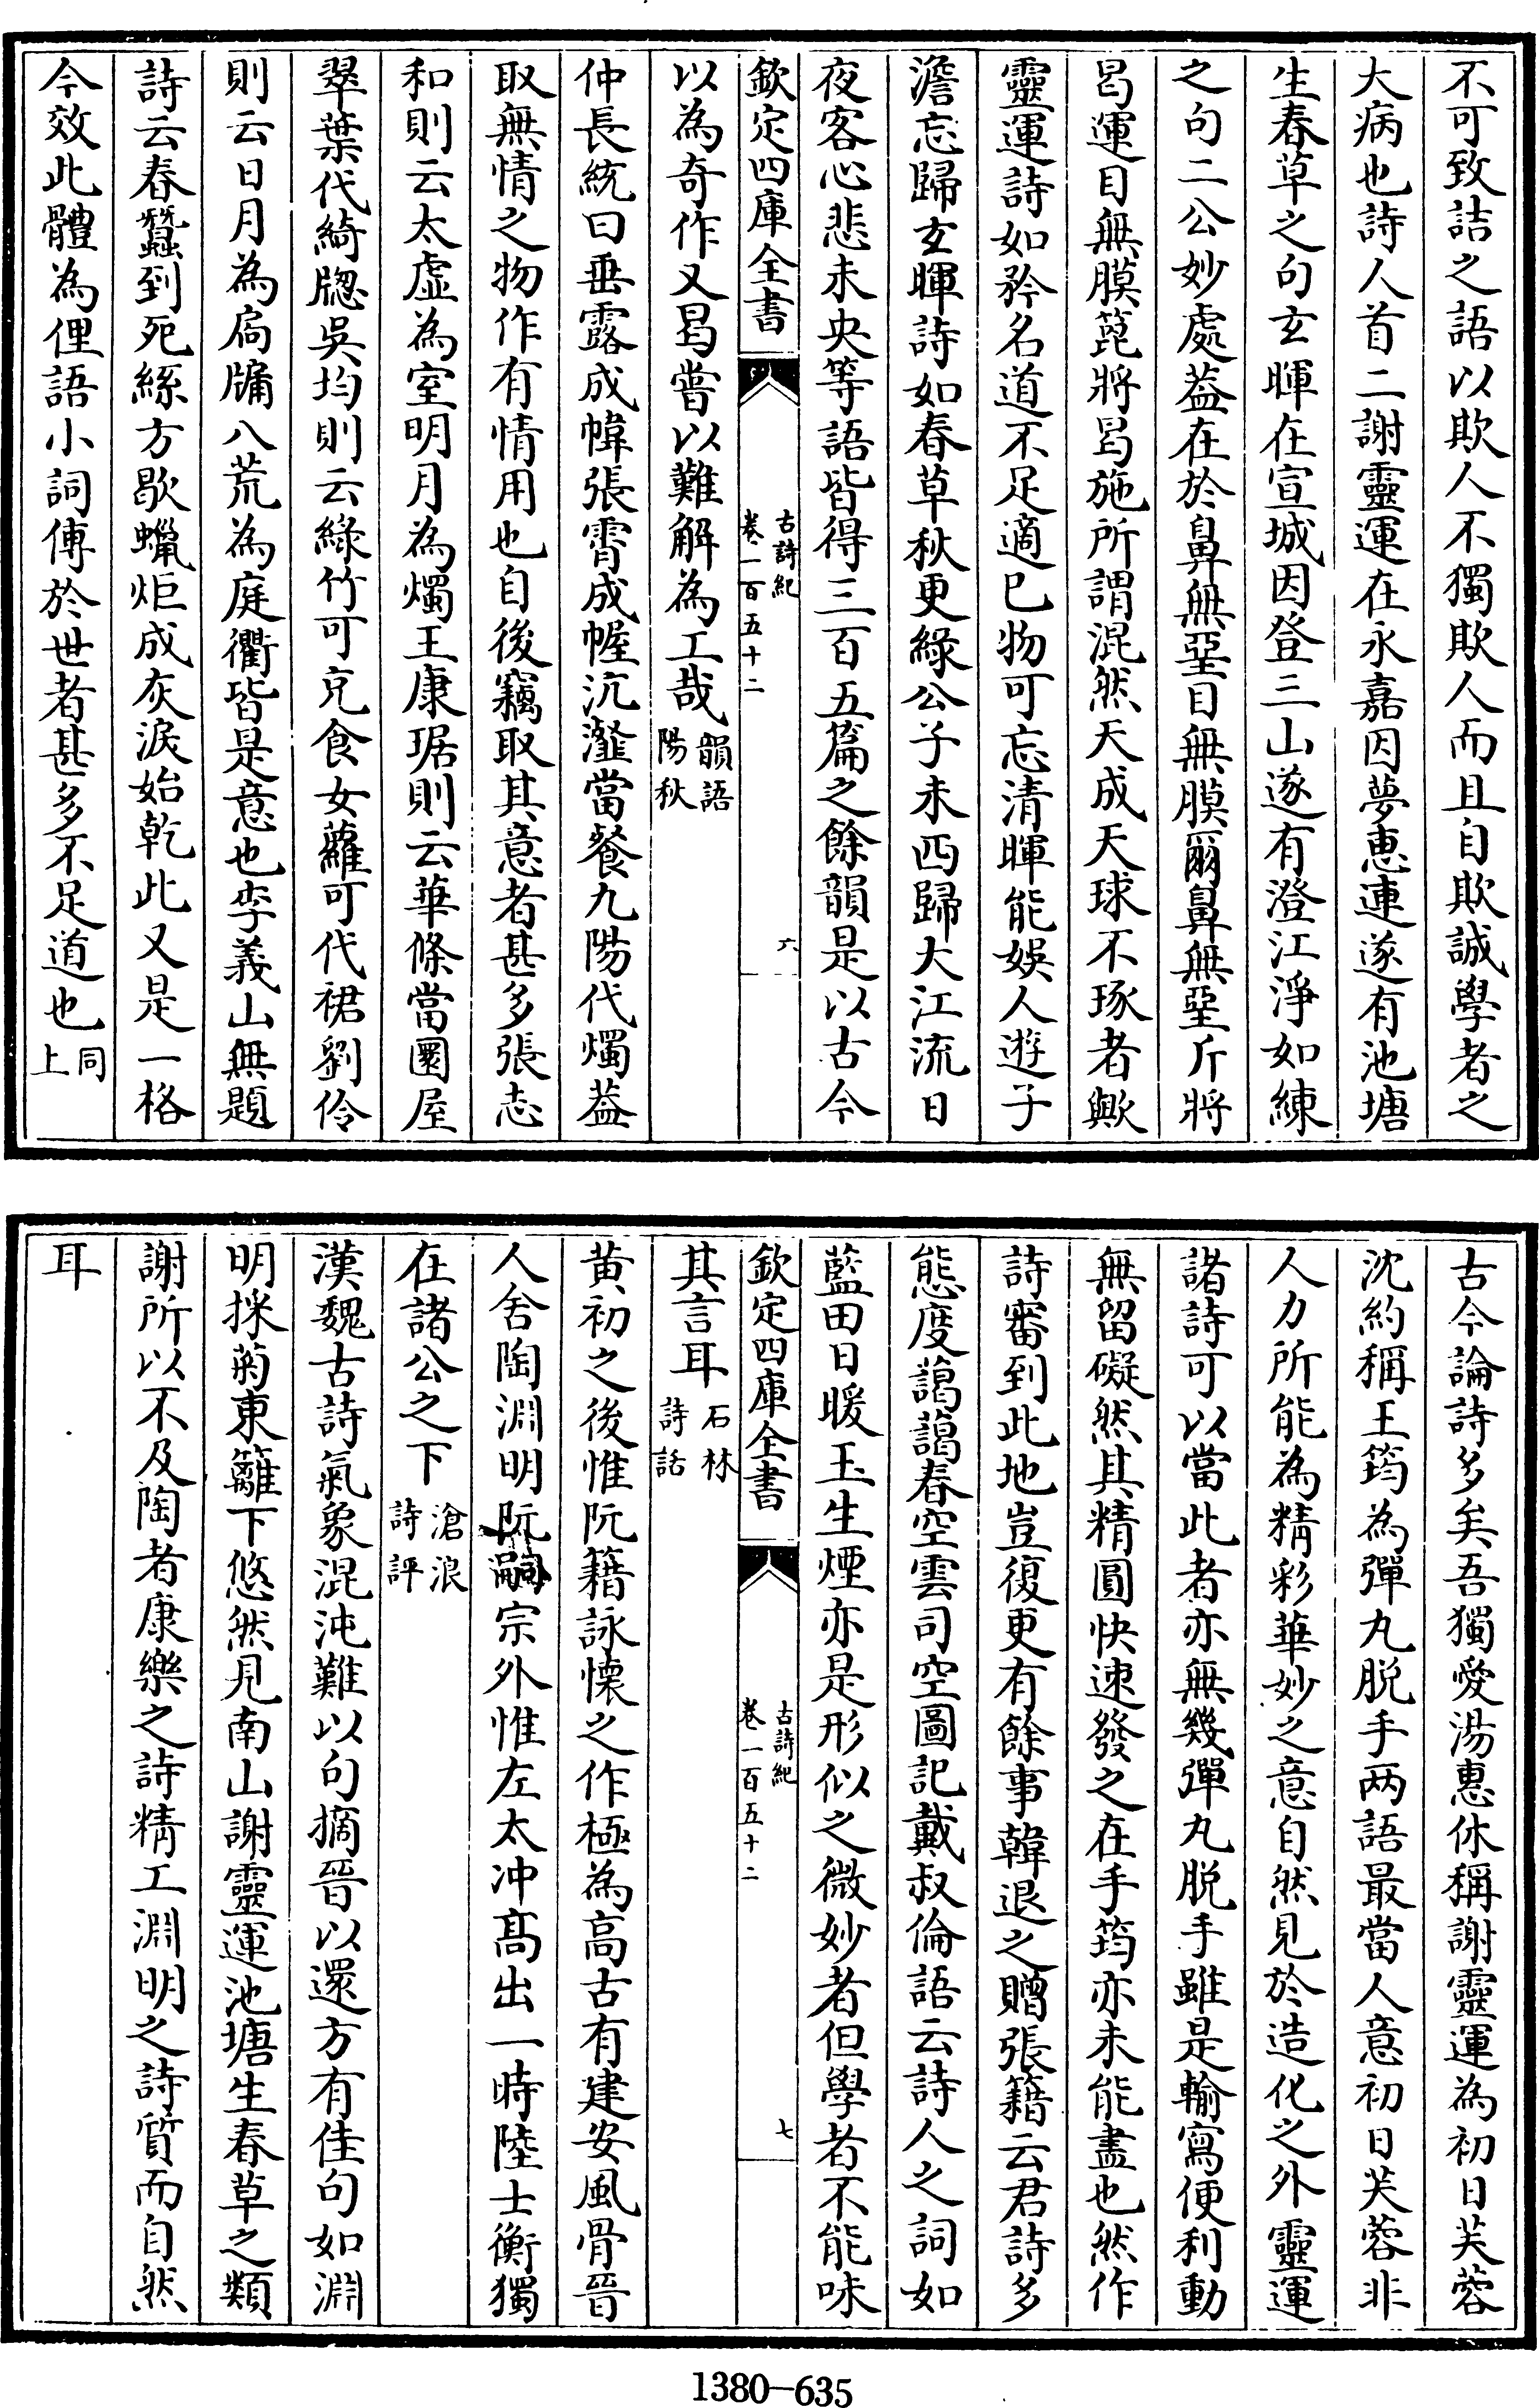 不可致詰之語以欺人不獨欺人而且自欺誠學者之
大病也詩人首二謝靈運在永嘉因夢惠連遂有池塘
生春草之句玄暉在宣城因登三山遂有澄江淨如練
之句二公妙處葢在於鼻無堊目無膜爾鼻無堊斤將
曷運目無膜箆將曷施所謂混然天成天球不琢者歟
靈運詩如矜名道不足適已物可忘清暉能娛人遊子
澹忘歸玄暉詩如春草秋更綠公子未西歸大江流日
夜客心悲未央等語皆得三百五篇之餘韻是以古今
欽定四庫全書
古詩紀
卷一百五十二
六
以為奇作又曷嘗以難解為工哉韻語
陽秋
仲長統曰垂露成幃張霄成幄沆瀣當餐九陽代燭葢
取無情之物作有情用也自後竊取其意者甚多張志
和則云太虛為室明月為燭王康琚則云華條當圜屋
翠葉代綺牕吳均則云綠竹可充食女蘿可代裙劉伶
則云日月為扃牖八荒為庭衢皆是意也李義山無題
詩云春蠶到死絲方歇蠟炬成灰淚始乾此又是一格
今效此體為俚語小詞傳於世者甚多不足道也同
上
古今論詩多矣吾獨愛湯惠休稱謝靈運為初日芙蓉
沈約稱王筠為彈丸脱手两語最當人意初日芙蓉非
人力所能為精彩華妙之意自然見於造化之外靈運
諸詩可以當此者亦無幾彈丸脱手雖是輸寫便利動
無留礙然其精圓快速發之在手筠亦未能盡也然作
詩審到此地豈復更有餘事韓退之贈張籍云君詩多
態度藹藹春空雲司空圖記戴叔倫語云詩人之詞如
藍田日暖玉生煙亦是形似之微妙者但學者不能味
欽定四庫全書
古詩紀
卷一百五十二
七
其言耳石林
詩話
黃初之後惟阮籍詠懷之作極為高古有建安風骨晉
人舍陶淵明阮嗣宗外惟左太冲髙出一時陸士衡獨
在諸公之下滄浪
詩評
漢魏古詩氣象混沌難以句摘晉以還方有佳句如淵
明採菊東籬下悠然見南山謝靈運池塘生春草之類
謝所以不及陶者康樂之詩精工淵明之詩質而自然
耳
1380-635